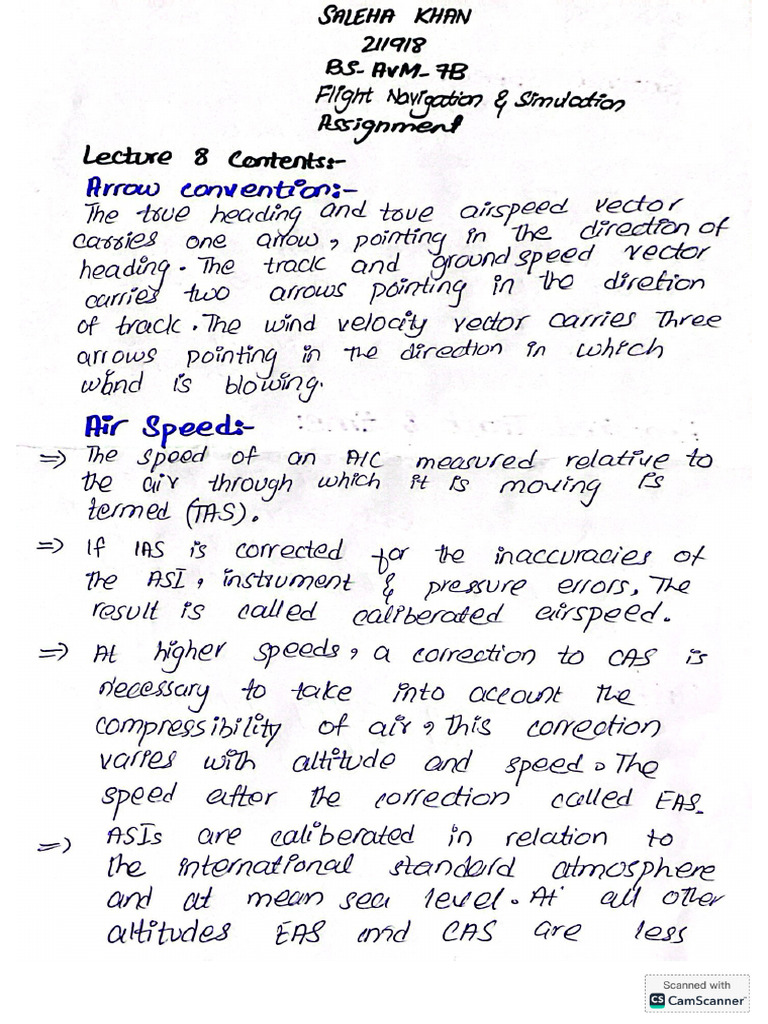 SALEHA KHAN
211918
BS-AVM-7B
Flight Navigation & Simulation
Assignment
Lecture 8 Contents:-
Arrow convention:-
The true heading and true airspeed vector
carries one arrow, pointing in the direction of
heading. The track and ground speed vector
carries two arrows pointing in the diretion
of track. The wind velocity vector carries three
arrows pointing in the direction in which
wind is blowing.
Air Speed:-
⇒ The speed of an A/C measured relative to
the air through which it is moving is
termed (TAS).
⇒ If IAS is corrected for the inaccuracies of
the ASI, instrument & pressure errors, The
result is called caliberated airspeed.
⇒ At higher speeds, a correction to CAS is
necessary to take into account the
compressibility of air, this correction
varies with altitude and speed. The
speed after the correction called EAS.
⇒ ASIs are caliberated in relation to
the international standard atmosphere
and at mean sea level. At all other
altitudes EAS and CAS are less
Scanned with
CS CamScanner